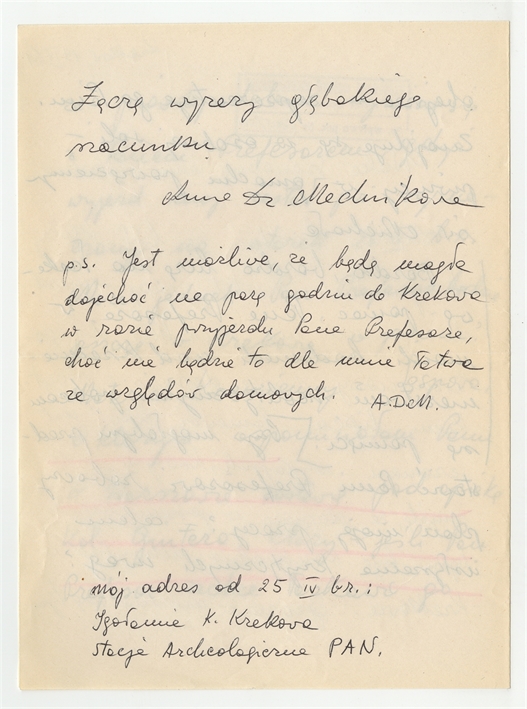 Łączę wyrazy głębokiego
szacunku
Anna Dz. Mednikova
p.s. Jest możliwe, że będę mogła
dojechać na parę godzin do Krakowa
w razie przyjazdu Pana Profesora,
choć nie będzie to dla mnie łatwe
ze względów domowych. A.D.M.
mój adres od 25 IV br.:
Igołomia k. Krakowa
stacja Archeologiczna PAN.